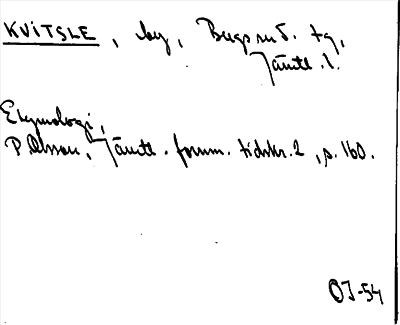 KVITSLE, by, Bergs sn o. tg,
Jämtl. l.
Etymologi,
P Olsson, Jämtl. fornm. tidskr. 2, s. 160.
OJ-54